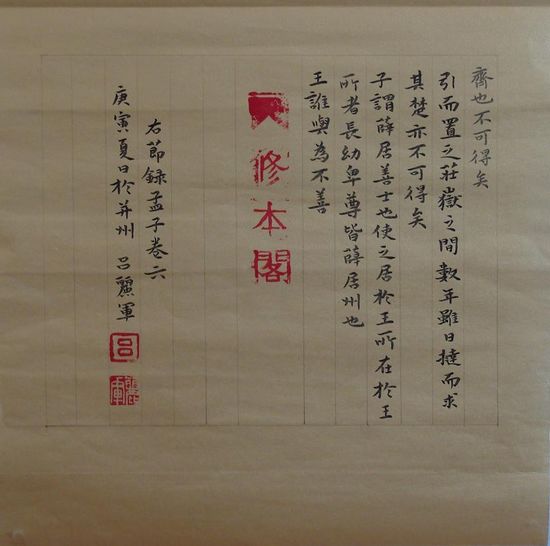 齊也不可得矣
引而置之莊嶽之間數年雖日撻而求
其楚亦不可得矣
子謂薛居善士也使之居於王所在於王
所者長幼卑尊皆薛居州也
王誰與為不善
修本閣
右節錄孟子卷六
庚寅夏日於并州 呂麗軍
呂
麗軍